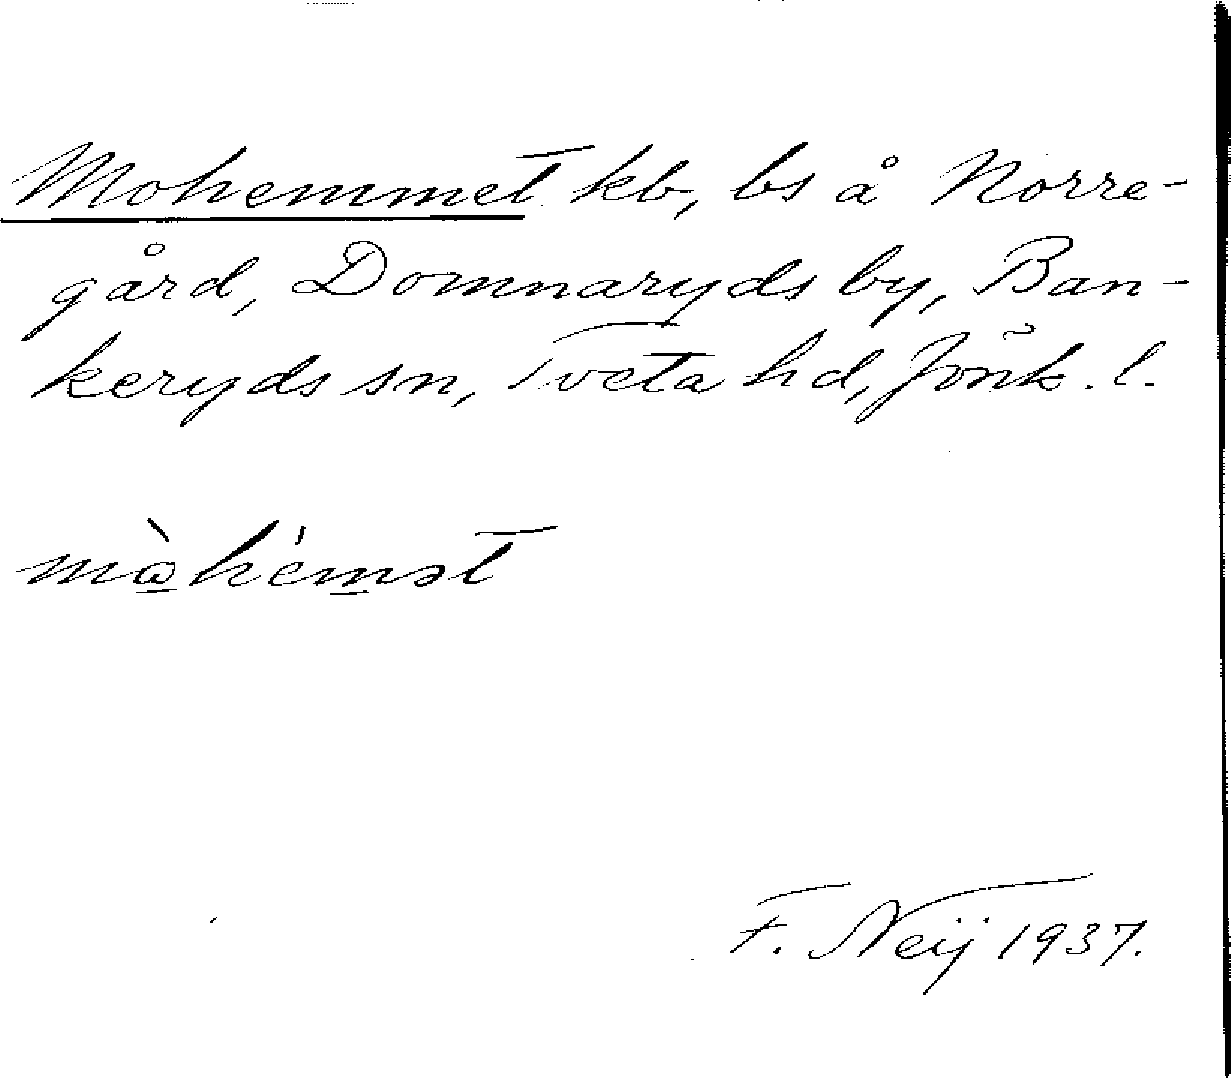 Mohemmet kb, bs å Norre-
gård, Domnaryds by, Ban-
keryds sn, Tveta hd, Jönk. l.
mòhémət
F. Neij 1937.